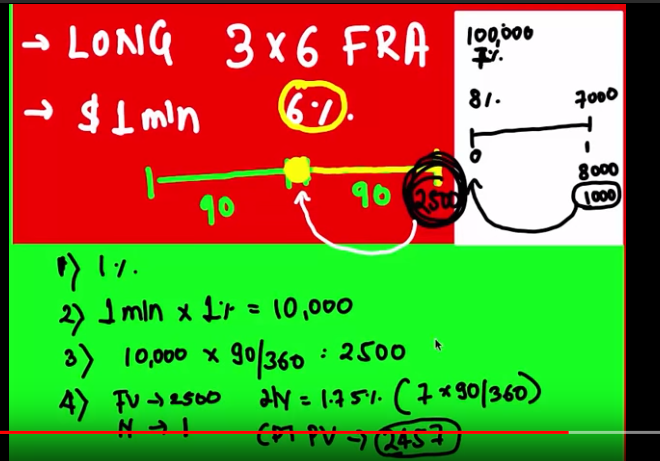 → LONG 3 x 6 FRA
→ $ 1 mln 6%.
90 90 2500
100,000
7%.
8%. 7000
0 1
8000
1000
1) 1%.
2) 1 mln x 1% = 10,000
3) 10,000 x 90/360 : 2500
4) FV → 2500 I/Y = 1.75%. (7 x 90/360)
N → 1 CPT PV → 2457